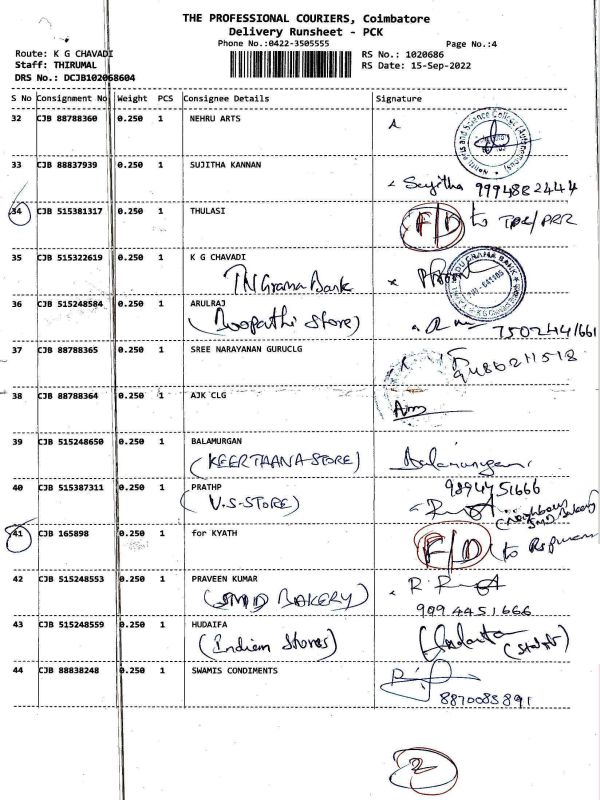 THE PROFESSIONAL COURIERS, Coimbatore
Delivery Runsheet - PCK
Phone No.:0422-3505555
Page No.:4
Route: K G CHAVADI
RS No.: 1020686
Staff: THIRUMAL
RS Date: 15-Sep-2022
DRS No.: DCJB102068604
S No Consignment No Weight PCS Consignee Details Signature
32 CJB 88788360 0.250 1 NEHRU ARTS
33 CJB 88837939 0.250 1 SUJITHA KANNAN
Sujitha 9994882444
34 CJB 515381317 0.250 1 THULASI
F/D to
35 CJB 515322619 0.250 1 K G CHAVADI
TN Grama Bank
36 CJB 515248584 0.250 1 ARULRAJ
(Boopathi Store)
7502441661
37 CJB 88788365 0.250 1 SREE NARAYANAN GURUCLG
9486211518
38 CJB 88788364 0.250 1 AJK CLG
39 CJB 515248650 0.250 1 BALAMURGAN
(KEERTAANA-STORE) Balamurugan
40 CJB 515387311 0.250 1 PRATHP
9894451666
(V.S-STORE)
(Neighbour
SMD Bakery)
41 CJB 165898 0.250 1 for KYATH
F/D to
42 CJB 515248553 0.250 1 PRAVEEN KUMAR
(SMD BAKERY)
9094451666
43 CJB 515248559 0.250 1 HUDAIFA
(Indian Stores)
(Staff)
44 CJB 88838248 0.250 1 SWAMIS CONDIMENTS
8870085891
2